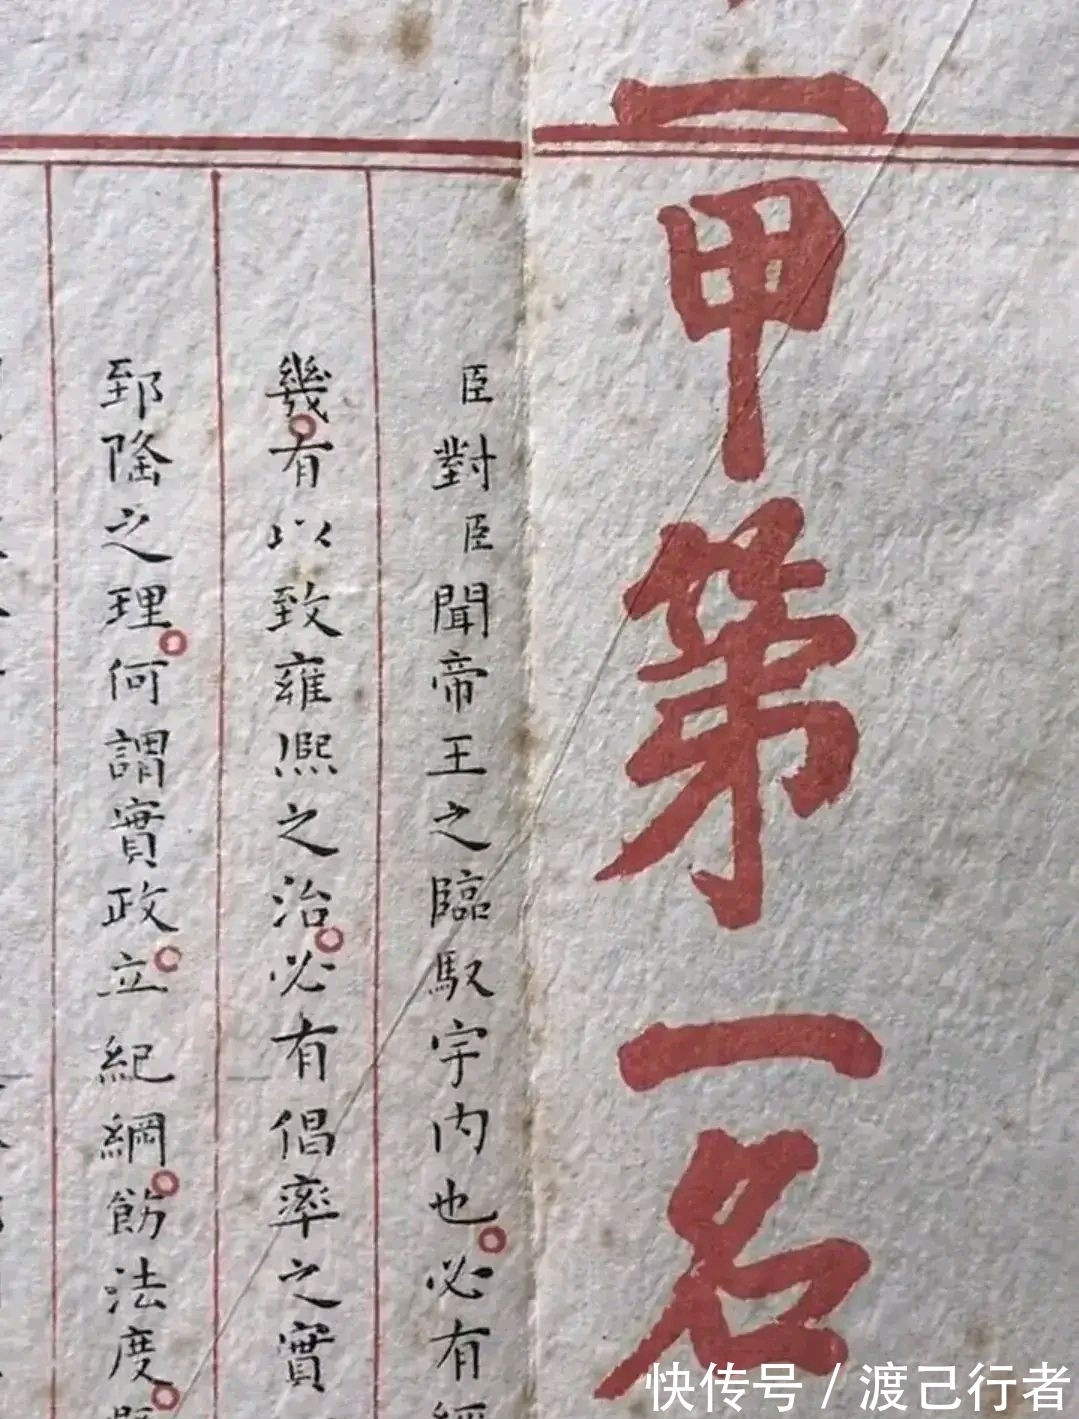 一甲第一名
臣對臣聞帝王之臨馭宇内也必有經
幾有以致雍熙之治必有倡率之實
郅隆之理何謂實政立紀綱飭法度
快传号 / 渡己行者